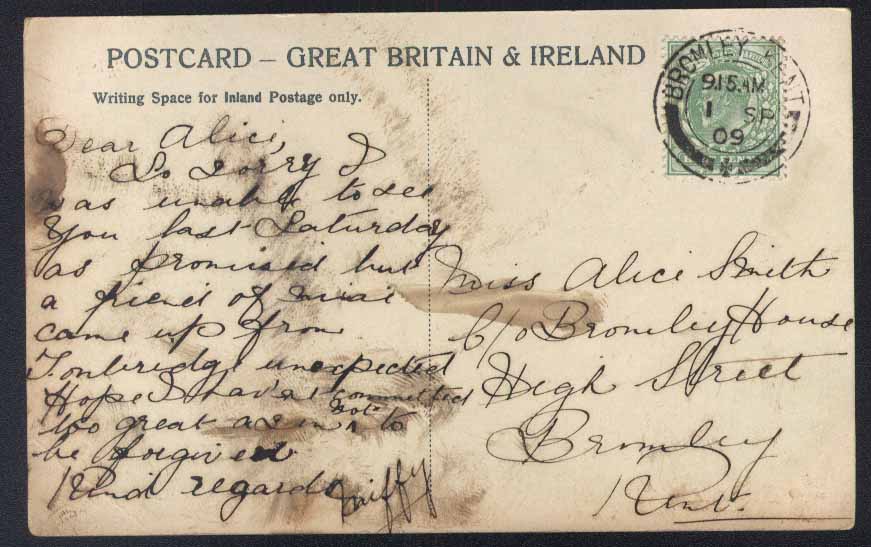 POSTCARD – GREAT BRITAIN & IRELAND
Writing Space for Inland Postage only.
BROMLEY KENT
9.15 AM
1 SP
09
Dear Alice,
So Sorry I
was unable to see
you last Saturday
as promised but
a friend of mine
came up from
Tonbridge unexpected
Hope I hav'nt committed
too great a sin not to
be forgiven
Kind regards
Miss Alice Smith
c/o Bromley House
High Street
Bromley
Kent.